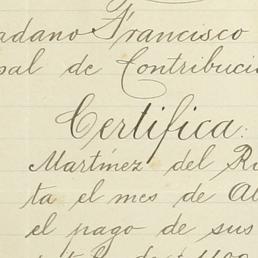 adano Francisco
pal de Contribuci
Certifica:
Martínez del R
ta el mes de A
el pago de sus